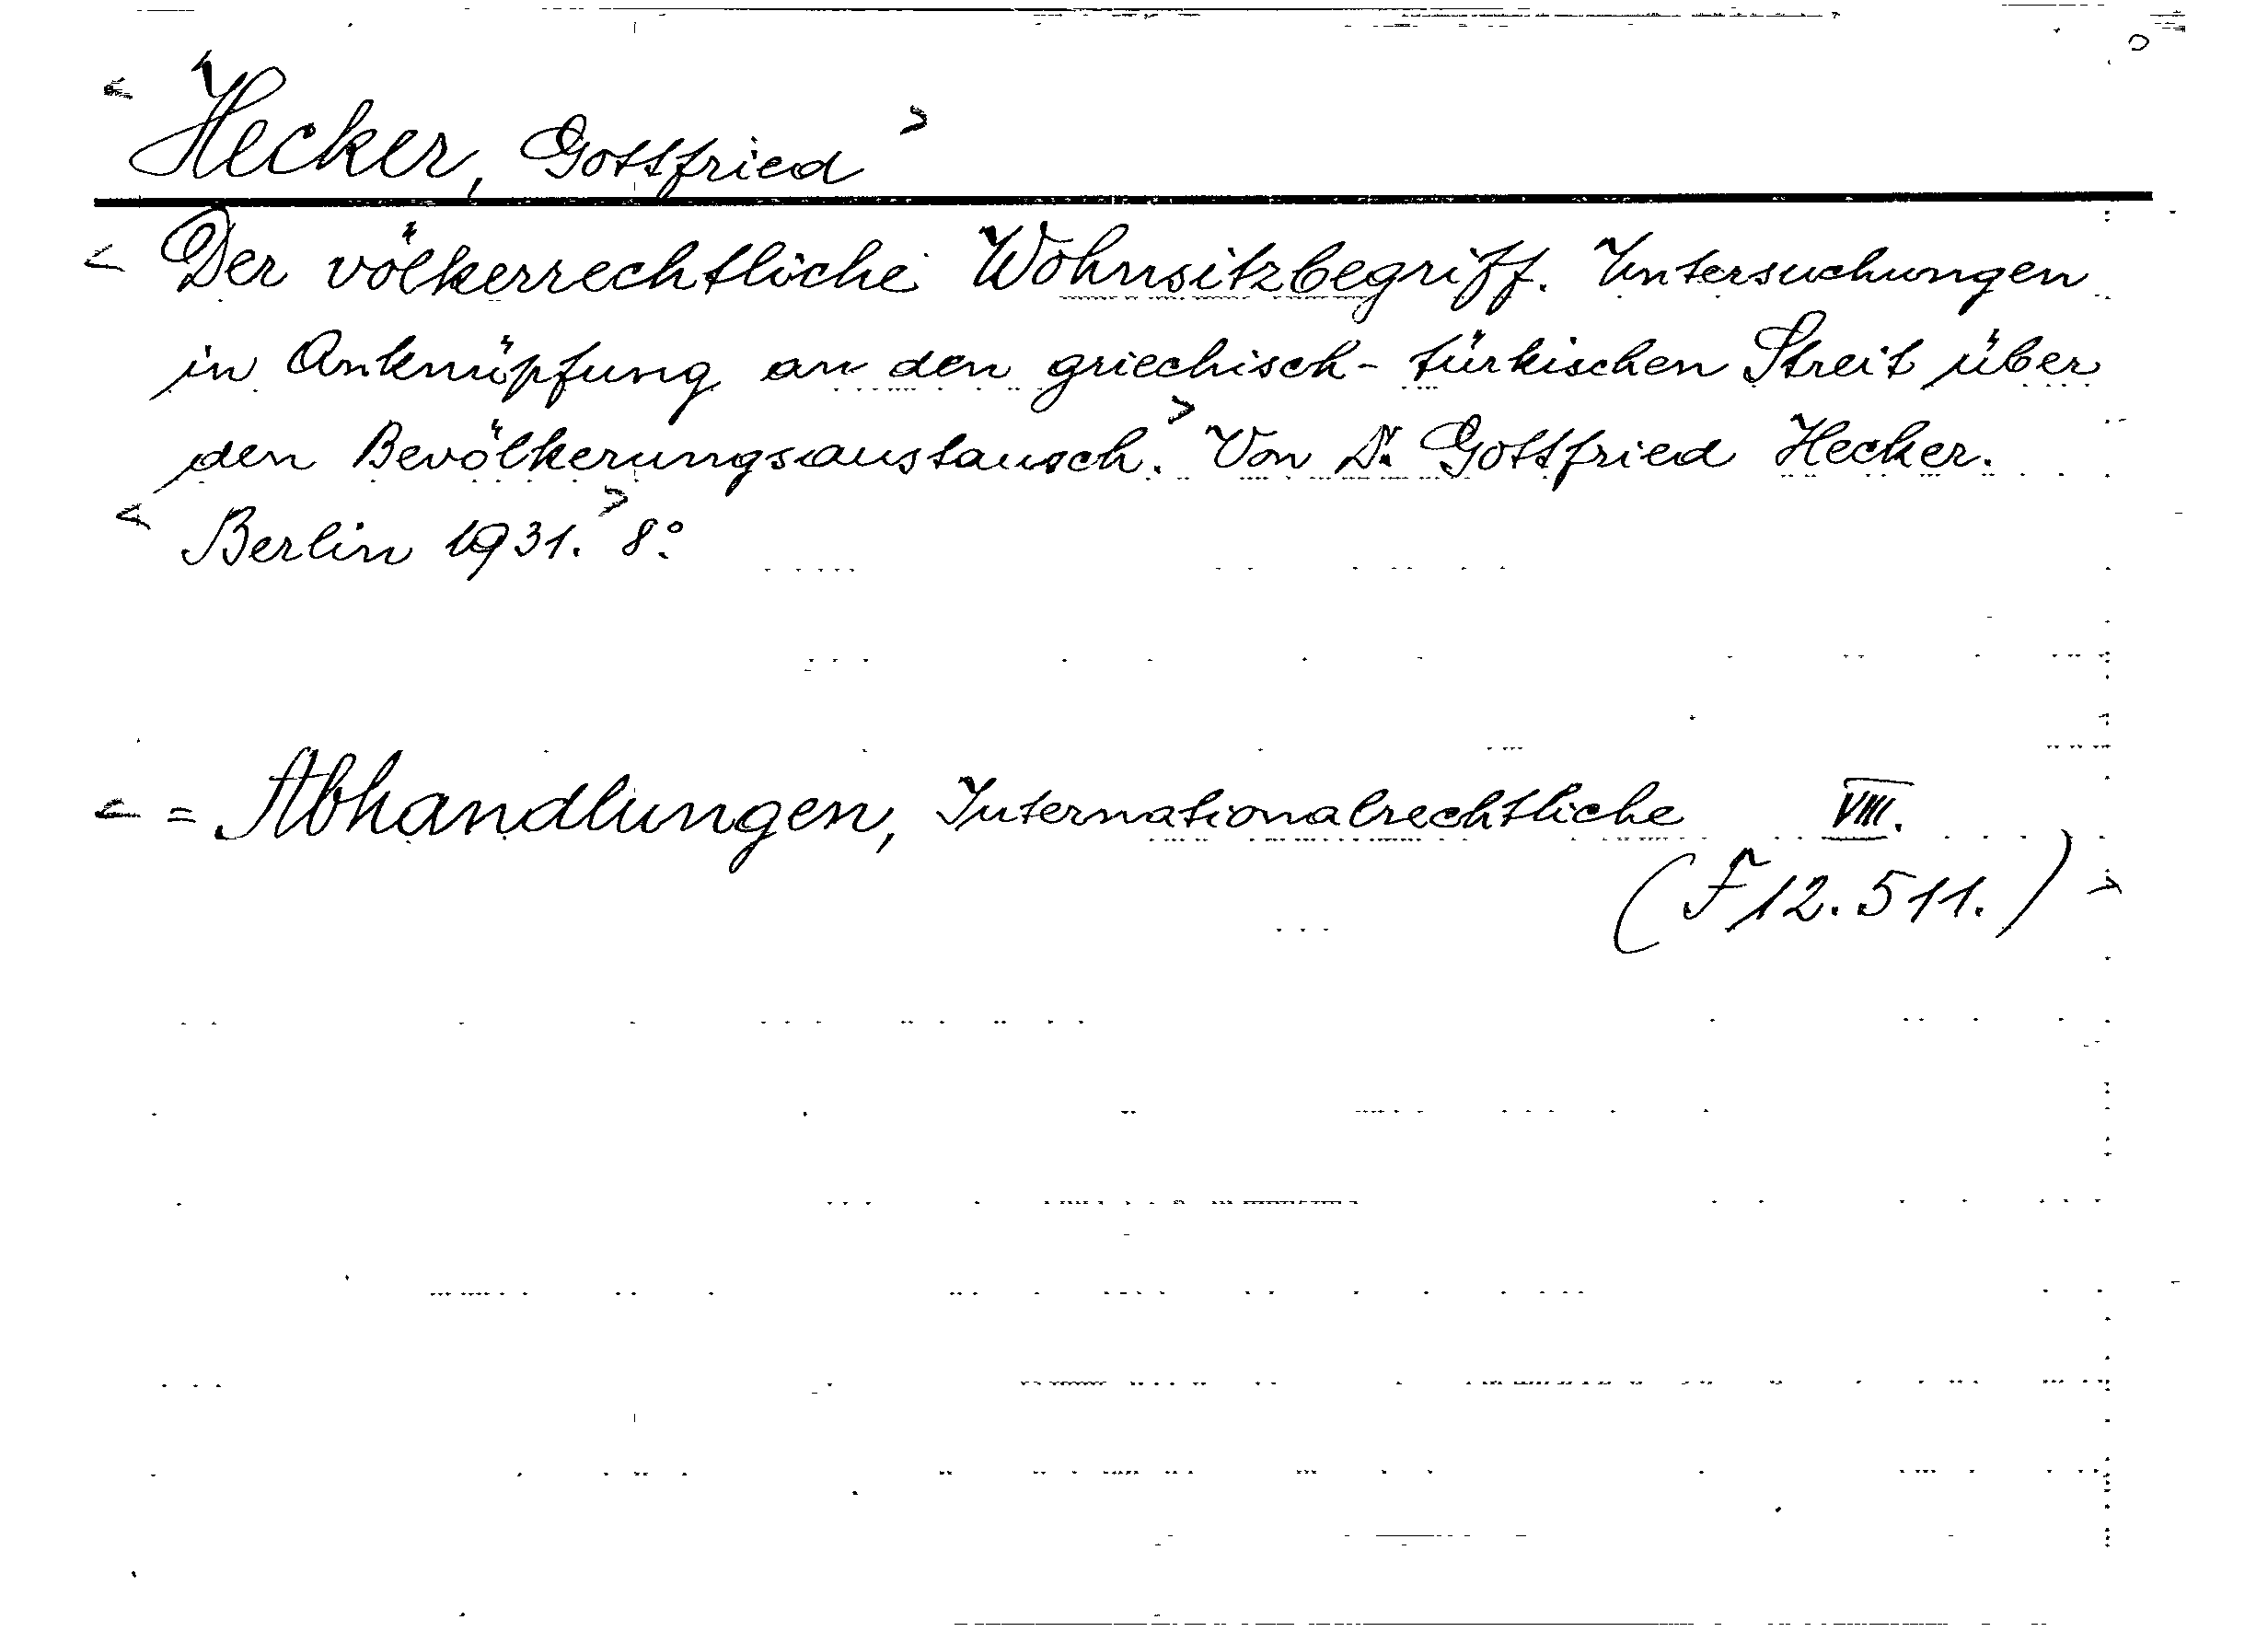 < Hecker, Gottfried >
< Der völkerrechtliche Wohnsitzbegriff. Untersuchungen
in Anknüpfung an den griechisch-türkischen Streit über
den Bevölkerungsaustausch. > Von Dr. Gottfried Hecker.
< Berlin 1931. > 8°.
< = Abhandlungen, Internationalrechtliche VIII.
(F 12.511.) >